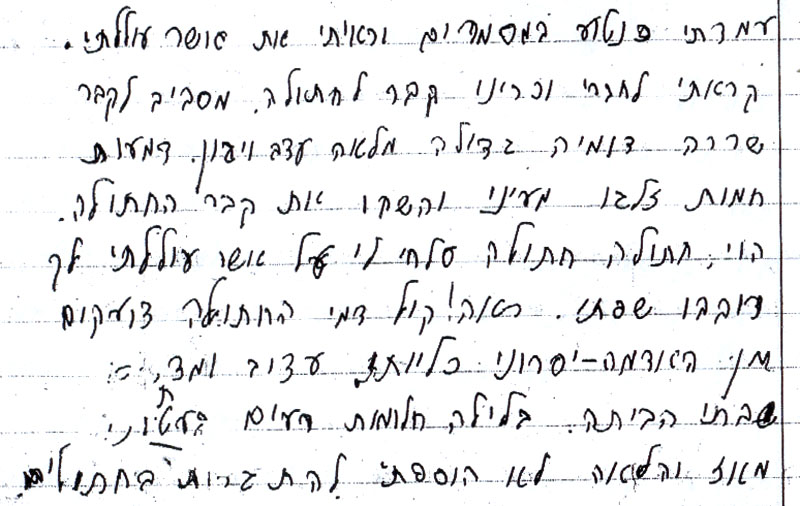 עמדתי כנטוע במסמרים וראיתי את אשר עוללתי.
קראתי לחברי וכרינו קבר לחתולה. מסביב לקבר
שררה דומיה גדולה מלאה עצב ויגון. דמעות
חמות זלגו מעיני והשקו את קבר החתולה.
הוי, חתולה חתולה סלחי לי על אשר עוללתי לך
דובבו שפתי. ראה! קול דמי החתולה צועקים
מן האדמה-יסרוני כליותי. עציב ומד
שבתי הביתה. בלילה חלומות רעים בעתוני
מאז והלאה לא הוספתי להתגרות בחתולים.